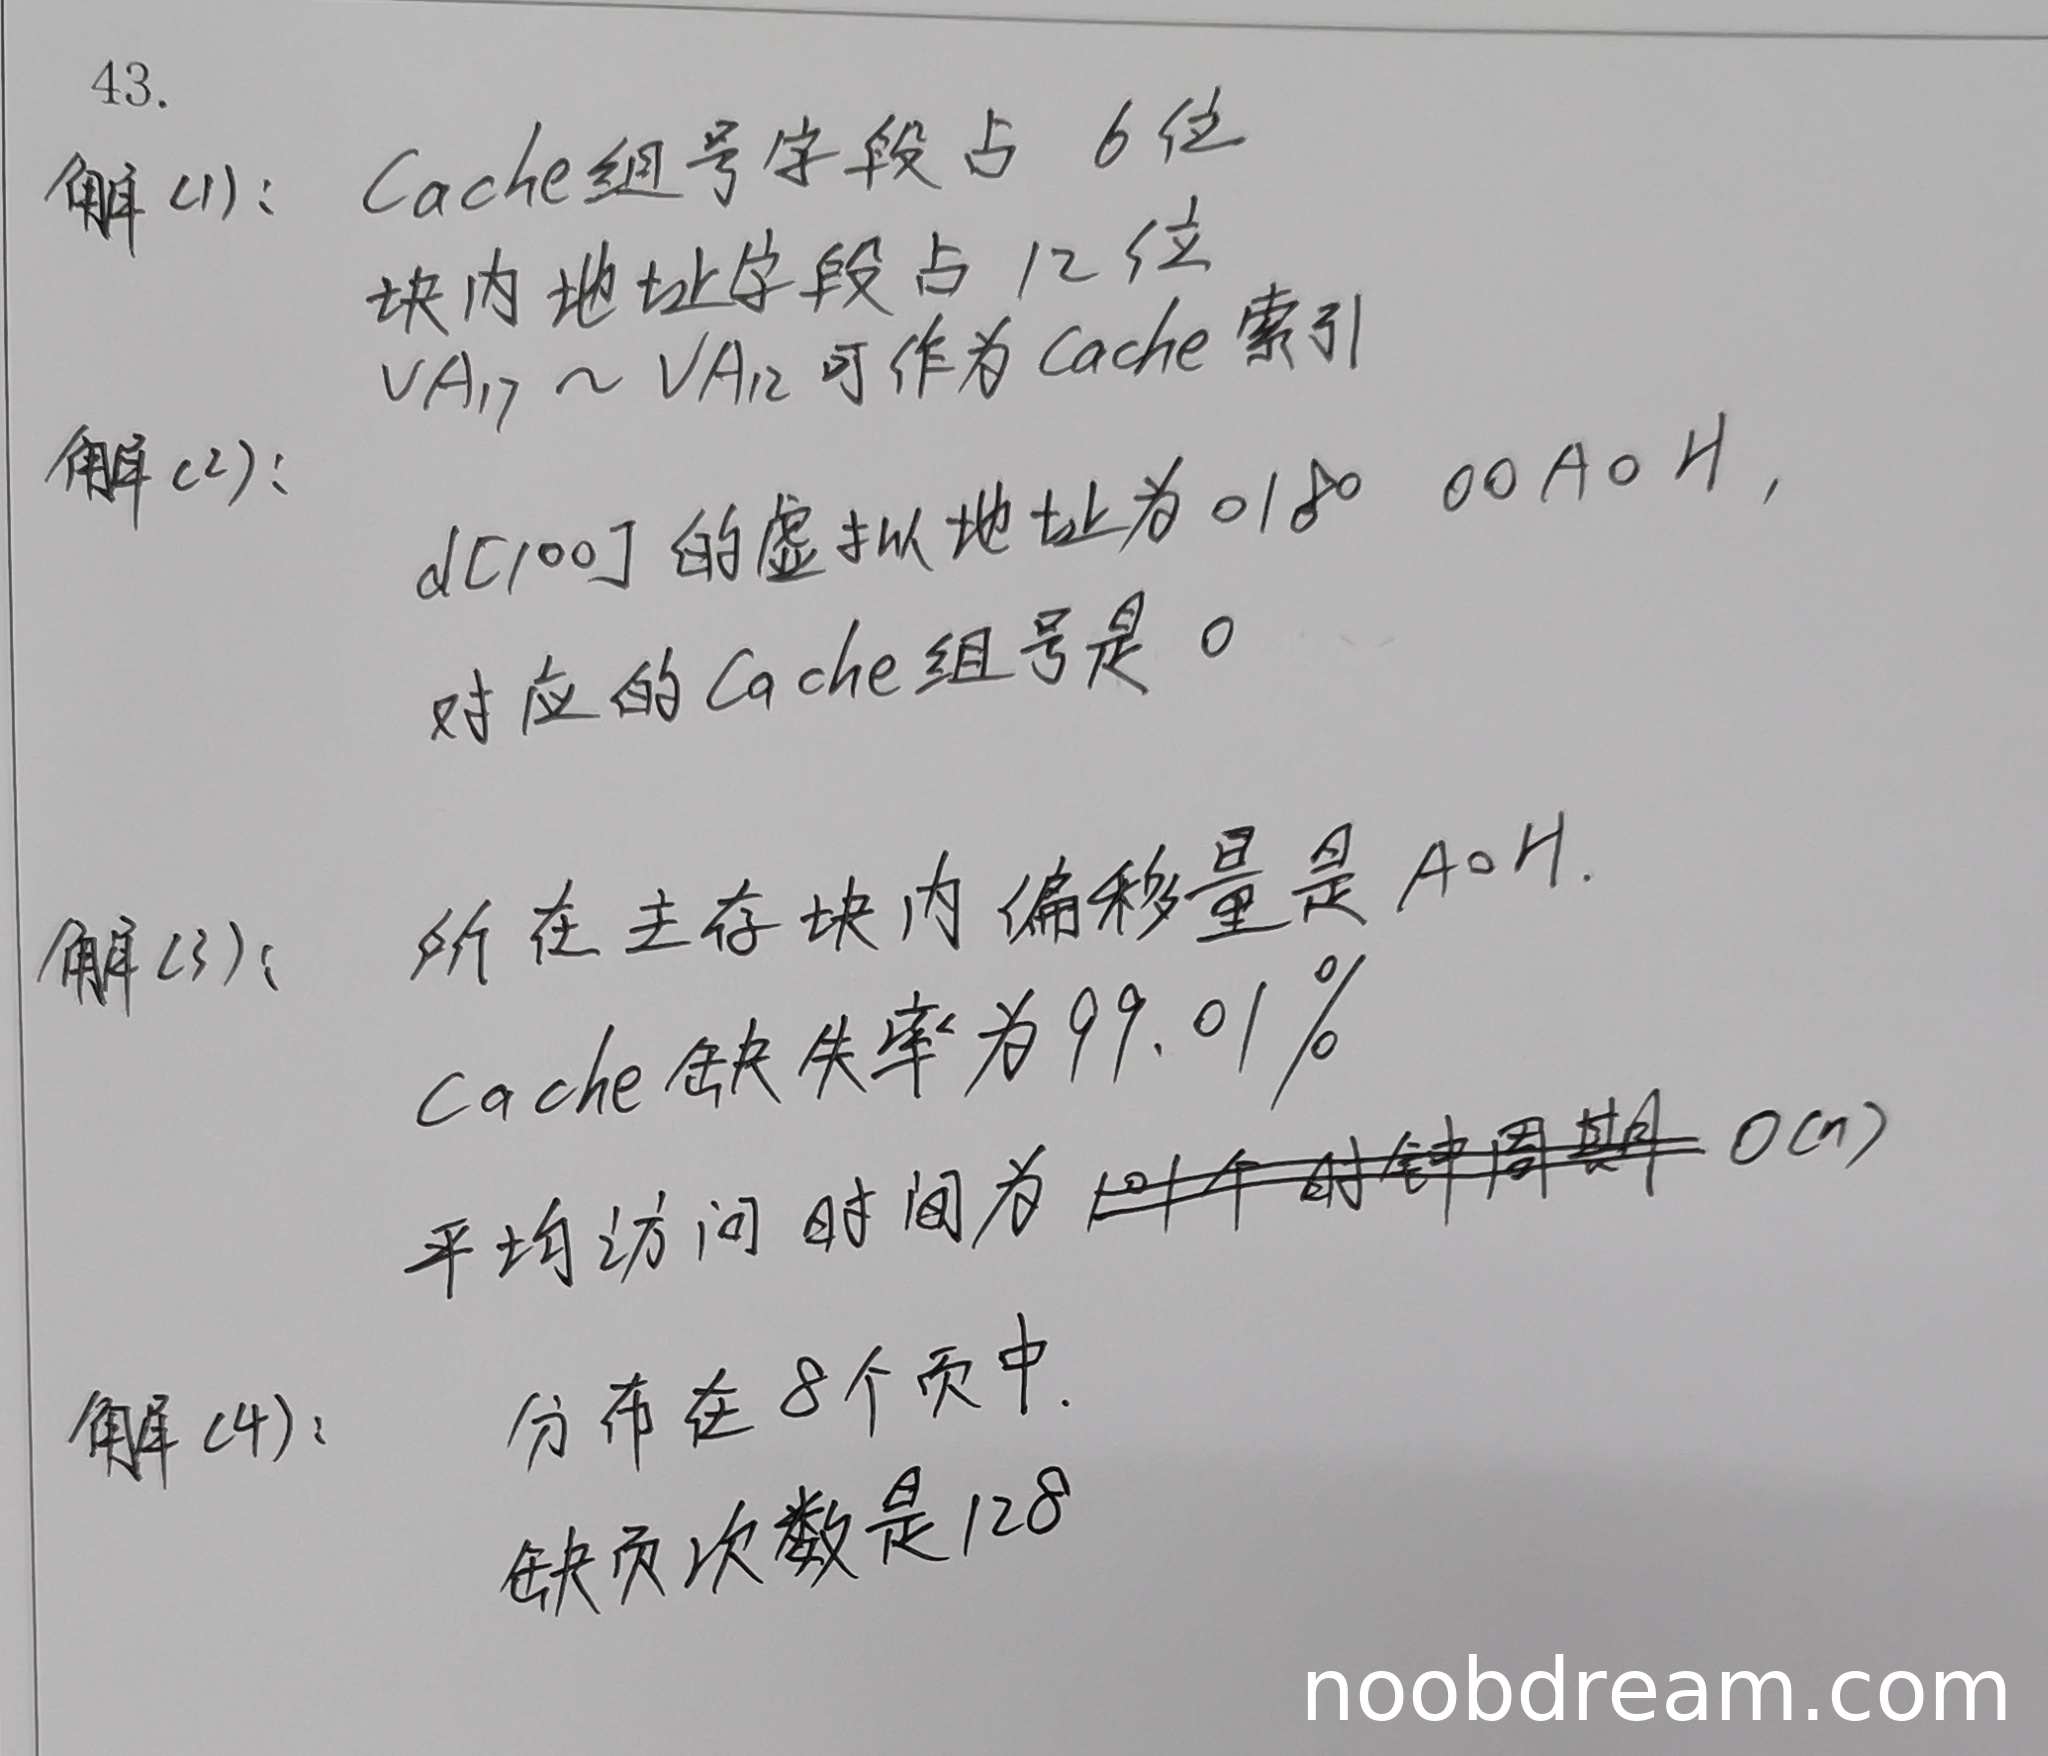 43.
解(1): Cache组号字段占 6位
块内地址字段占12位
VA17 ~ VA12 可作为Cache索引
解(2):
d[100]的虚拟地址为0180 00A0H,
对应的Cache组号是0
解(3): 所在主存块内偏移量是A0H.
Cache缺失率为99.01%
平均访问时间为 101个时钟周期 O(n)
解(4): 分布在8个页中.
缺页次数是128
noobdream.com